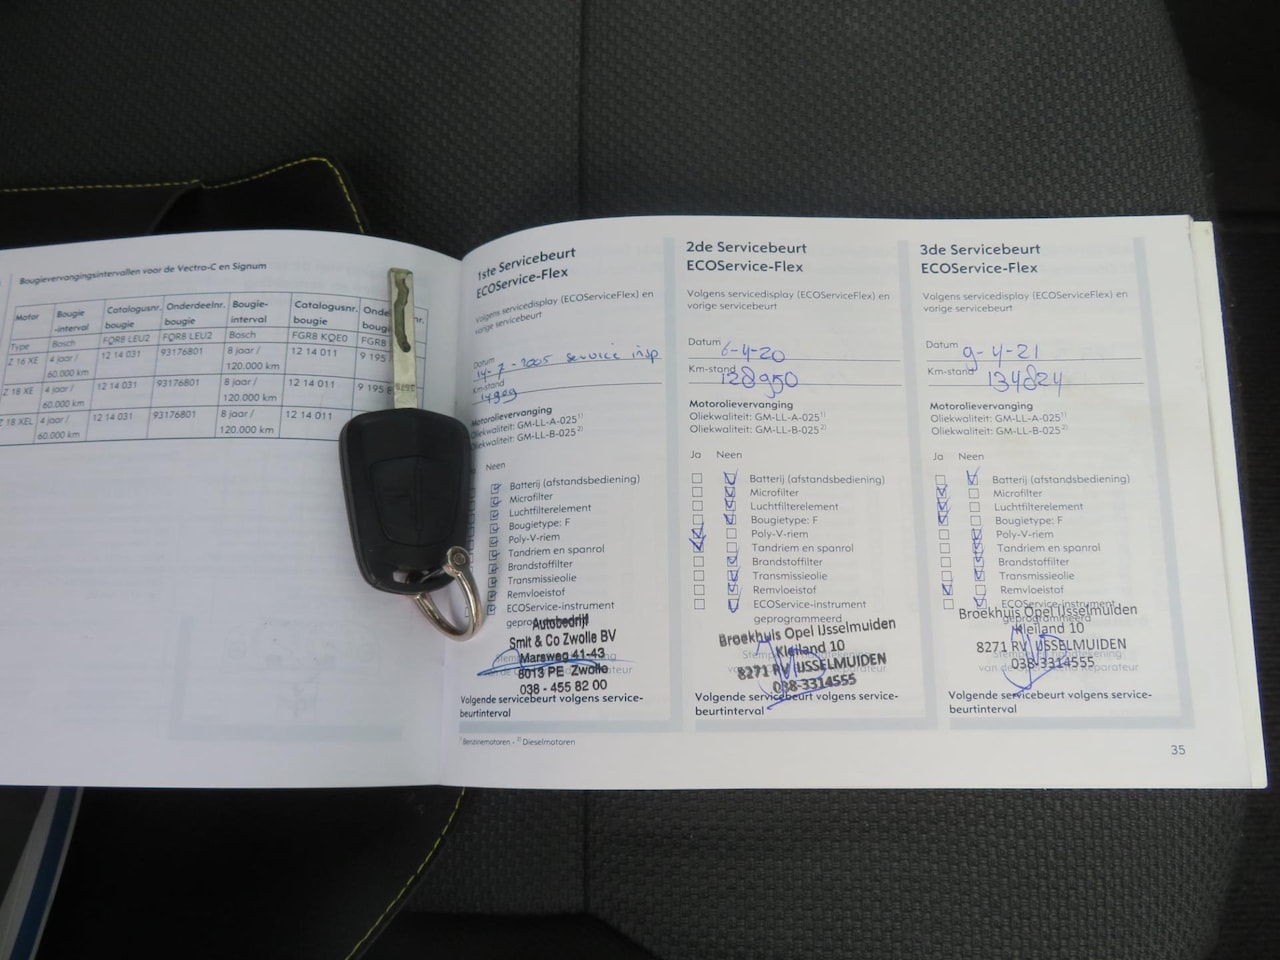 Bougievervangingsintervallen voor de Vectra-C en Signum
Motor Bougie-interval Catalogusnr. bougie Onderdeelnr. bougie Bougie-interval Catalogusnr. bougie
Type Bosch FQR8 LEU2 FQR8 LEU2 Bosch FGR8 KQE0 FGR8
Z 16 XE 4 jaar / 60.000 km 12 14 031 93176801 8 jaar / 120.000 km 12 14 011 9 195
Z 18 XE 4 jaar / 60.000 km 12 14 031 93176801 8 jaar / 120.000 km 12 14 011 9 195
Z 18 XEL 4 jaar / 60.000 km 12 14 031 93176801 8 jaar / 120.000 km 12 14 011
1ste Servicebeurt
ECOService-Flex
Volgens servicedisplay (ECOServiceFlex) en
vorige servicebeurt
Datum
14-7-2005 service insp
Km-stand
Motorolievervanging
Oliekwaliteit: GM-LL-A-025 1)
Oliekwaliteit: GM-LL-B-025 2)
Neen
Batterij (afstandsbediening)
Microfilter
Luchtfilterelement
Bougietype: F
Poly-V-riem
Tandriem en spanrol
Brandstoffilter
Transmissieolie
Remvloeistof
ECOService-instrument
Autobedrijf
Smit & Co Zwolle BV
Marsweg 41-43
8013 PE Zwolle
038 - 455 82 00
Volgende servicebeurt volgens service-
beurtinterval
1) Benzinemotoren - 2) Dieselmotoren
2de Servicebeurt
ECOService-Flex
Volgens servicedisplay (ECOServiceFlex) en
vorige servicebeurt
Datum 6-4-20
Km-stand 128950
Motorolievervanging
Oliekwaliteit: GM-LL-A-025 1)
Oliekwaliteit: GM-LL-B-025 2)
Ja Neen
Batterij (afstandsbediening)
Microfilter
Luchtfilterelement
Bougietype: F
Poly-V-riem
Tandriem en spanrol
Brandstoffilter
Transmissieolie
Remvloeistof
ECOService-instrument
geprogrammeerd
Broekhuis Opel IJsselmuiden
Kleiland 10
8271 RV IJSSELMUIDEN
038-3314555
Volgende servicebeurt volgens service-
beurtinterval
3de Servicebeurt
ECOService-Flex
Volgens servicedisplay (ECOServiceFlex) en
vorige servicebeurt
Datum 9-4-21
Km-stand 134824
Motorolievervanging
Oliekwaliteit: GM-LL-A-025 1)
Oliekwaliteit: GM-LL-B-025 2)
Ja Neen
Batterij (afstandsbediening)
Microfilter
Luchtfilterelement
Bougietype: F
Poly-V-riem
Tandriem en spanrol
Brandstoffilter
Transmissieolie
Remvloeistof
ECOService-instrument
geprogrammeerd
Broekhuis Opel IJsselmuiden
Kleiland 10
8271 RV IJSSELMUIDEN
038-3314555
Volgende servicebeurt volgens service-
beurtinterval
35